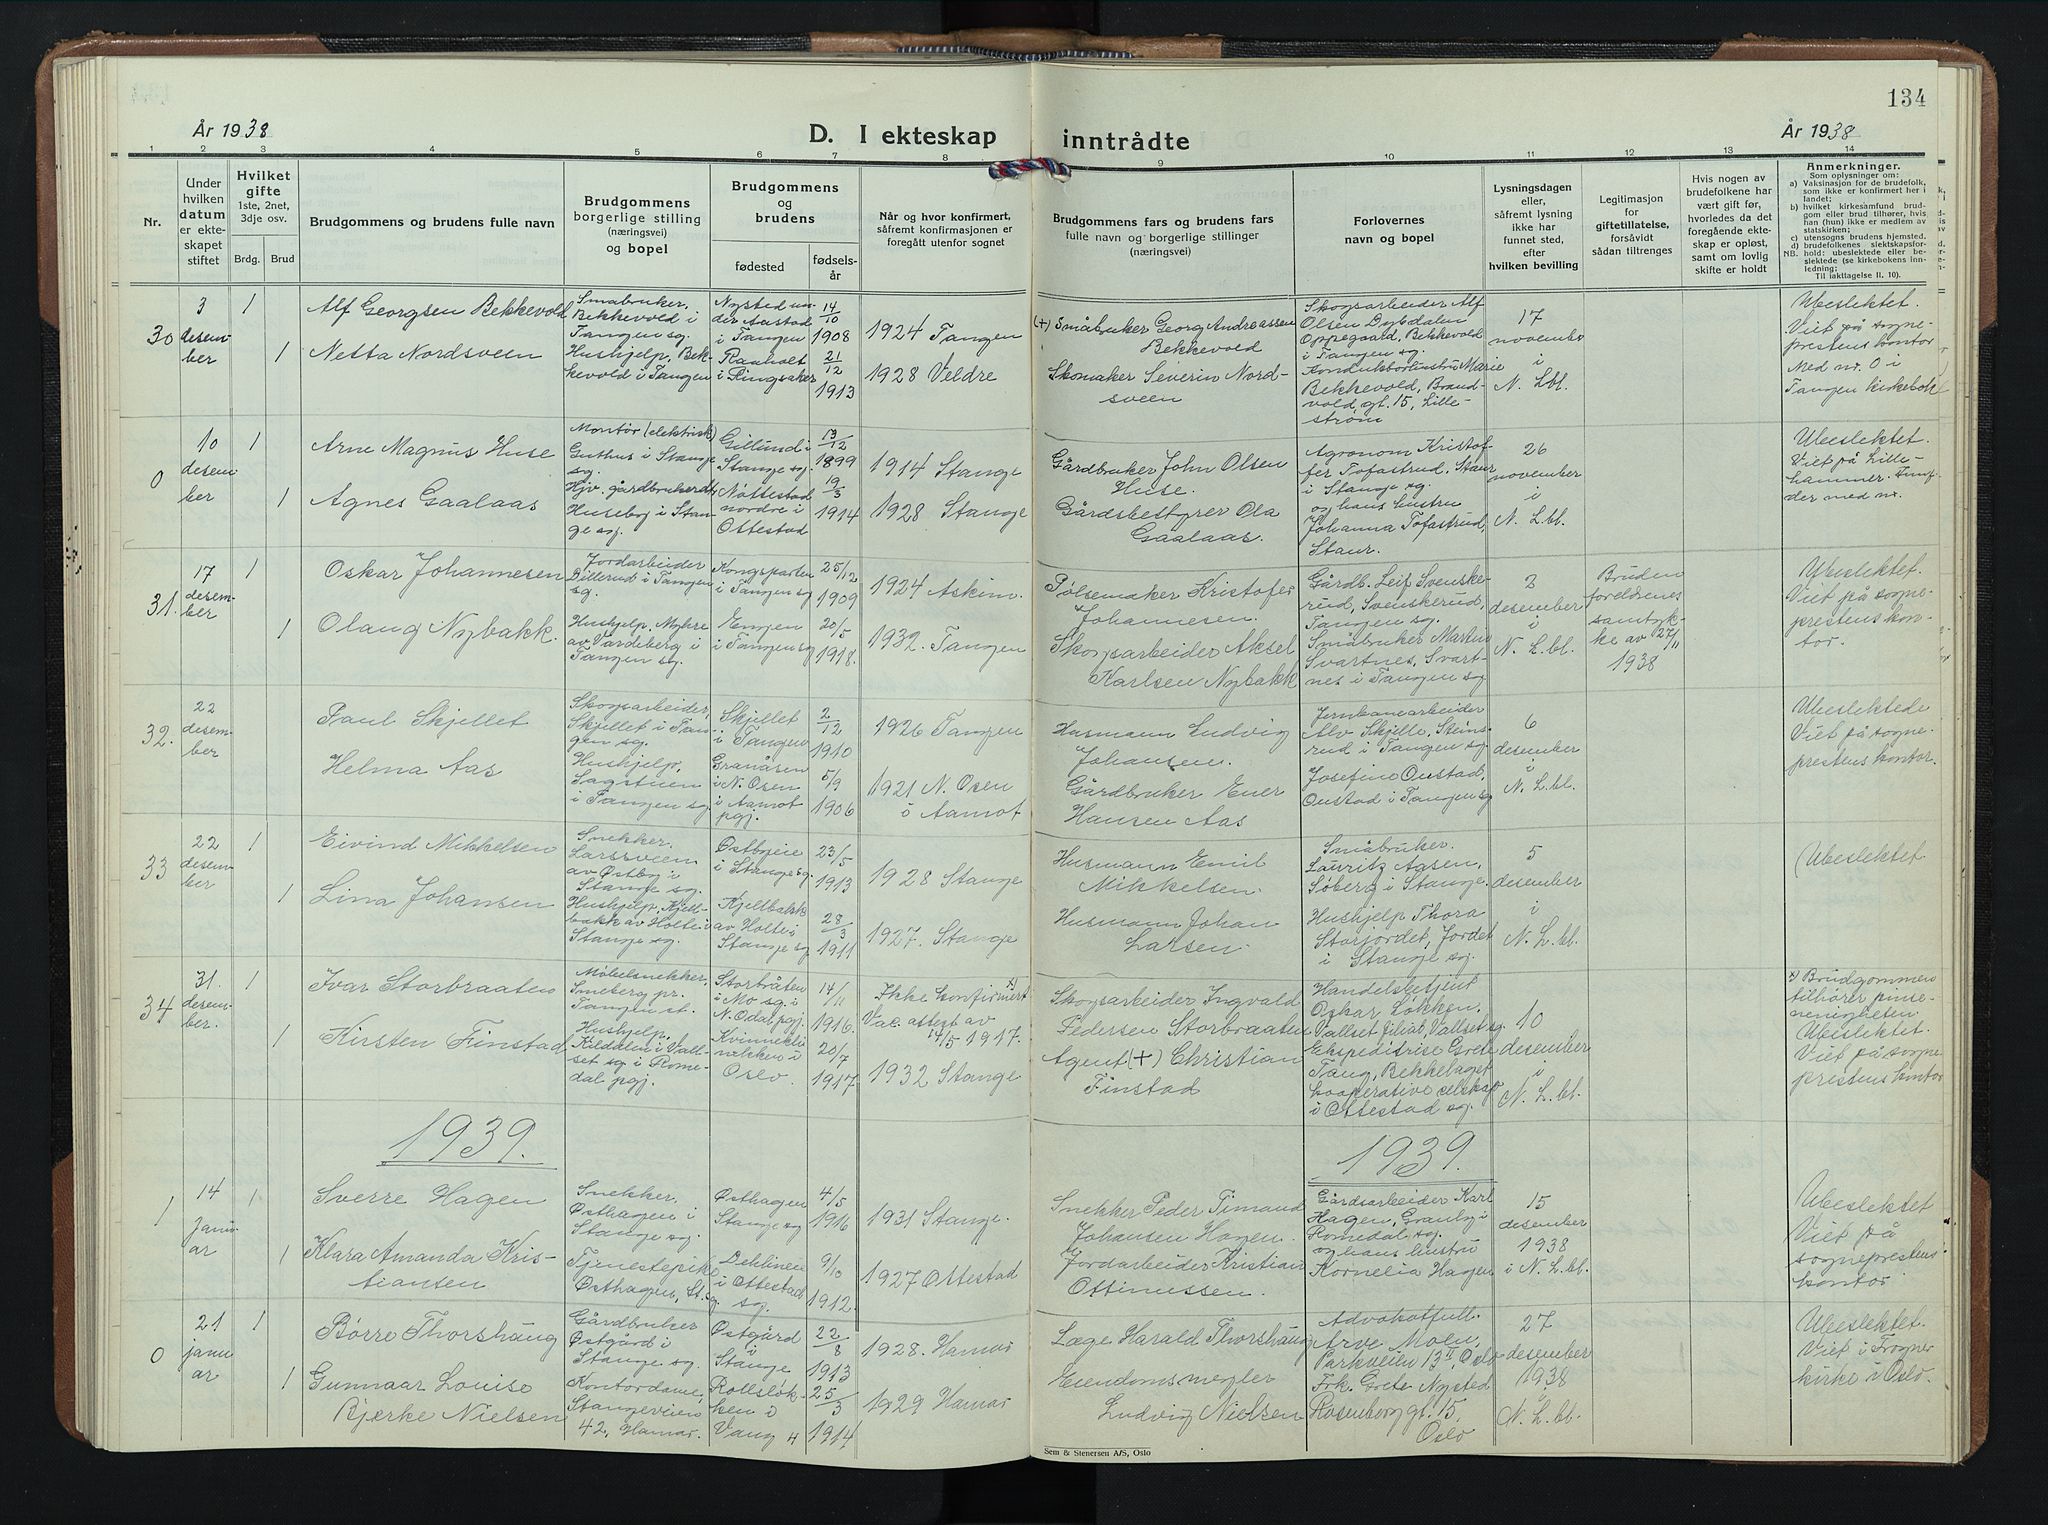 134
År 1938
D. I ekteskap inntrådte
År 1938
1 2 3 4 5 6 7 8 9 10 11 12 13 14
Nr.
Under hvilken datum er ekteskapet stiftet
Hvilket gifte
1ste, 2net, 3dje osv.
Brdg. Brud
Brudgommens og brudens fulle navn
Brudgommens borgerlige stilling (næringsvei) og bopel
Brudgommens og brudens
fødested
fødselsår
Når og hvor konfirmert, såfremt konfirmasjonen er foregått utenfor sognet
Brudgommens fars og brudens fars fulle navn og borgerlige stillinger (næringsvei)
Forlovernes navn og bopel
Lysningsdagen eller, såfremt lysning ikke har funnet sted, efter hvilken bevilling
Legitimasjon for giftetillatelse, forsåvidt sådan tiltrenges
Hvis nogen av brudefolkene har vært gift før, hvorledes da det foregående ekteskap er opløst, samt om lovlig skifte er holdt
Anmerkninger.
Som oplysninger om:
a) Vaksinasjon for de brudefolk, som ikke er konfirmert her i landet:
b) hvilket kirkesamfund brudgom eller brud tilhører, hvis han (hun) ikke er medlem av statskirken;
c) utensogns brudens hjemsted.
d) brudefolkenes slektskapsforhold: ubeslektede eller beslektede (se kirkebokens innledning;
NB. Til iakttagelse II. 10).
30
3 desember
1
Alf Georgsen Bekkevold
Småbruker, Bekkevold i Tangen sg.
Nysted under Aastad i Tangen
14/10 1908
1924 Tangen
(+) Småbruker Georg Andreassen Bekkevold
Skogsarbeider Alf Olsen Dybdalen Oppegaard, Bekkevold i Tangen sg.
17 november i N. Lbl.
Ubeslektet. Viet på sogneprestens kontor Med nr. 0 i Tangen kirkebok
1
Netta Nordsveen
Hushjelp, Bekkevold i Tangen
i Ringsaker
21/12 1913
1928 Veldre
Skomaker Severin Nordsveen
Konduktørhustru Marie Bekkevold, Brandvold, gt. 15, Lillestrøm
0
10 desember
1
Arne Magnus Huse
Montør (elektrisk) Guthus i Stange sg.
Gillund i Stange sg.
13/12 1899
1914 Stange
Gårdbruker John Olsen Huse.
Agronom Kristoffer Tofastrud, Staur i Stange sg.
26 november i N. Lbl.
Ubeslektet. Viet på Lillehammer.
1
Agnes Gaalaas
Huseby i Stange sg.
Nøttestad nordre i Ottestad
19/3 1914
1928 Stange
Gårdsbestyrer Ola Gaalaas.
og hans hustru Johanna Tofastrud, Staur.
31.
17 desember
1
Oskar Johannesen
Jordarbeider Billerud i Tangen sg.
Kongsparten i Tangen sg
25/12 1909
1924 Askim.
Pølsemaker Kristofer Johannesen.
Gårdb. Leif Svenskerud, Svenskerud, Tangen sg.
2 desember i N. L. bl.
Bruden foreldrenes samtykke av 27/11 1938
Ubeslektet. Viet på sogneprestens kontor.
1
Olaug Nybakk.
Hushjelp, Myhre av Vardeberg i Tangen sg.
Engen i Tangen sg
20/5 1918.
1932. Tangen
Skogsarbeider Aksel Karlsen Nybakk
Småbruker Martin Svartnes, Svartnes i Tangen sg
32.
22 desember
Paul Skjellet
Skogsarbeider, Skjellet i Tangen sg.
Skjellet i Tangen
2/12 1910
1926 Tangen
Husmann Ludvig Johansen.
Jernbanearbeider Alv Skjelle, Steinsrud i Tangen sg
6 desember i N. L. bl.
Ubeslektede Viet på sogneprestens kontor.
Helma Aas
Hushjelp, Sagstuen i Tangen sg.
Granåsen i N. Osen i Aamot pgj.
5/9 1906
1921 N. Osen i Aamot
Gårdbruker Ener Hansen Aas
Josefine Oustad, Oustad i Tangen sg
33
22 desember
1
Eivind Mikkelsen
Snekker. Larssveen av Østby i Stange sg.
Østbyeie i Stange sg.
23/5 1913
1928 Stange
Husmann Emil Mikkelsen.
Småbruker. Lauritz Aasen, Søberg i Stange.
5 desember i N. L. bl.
Ubeslektet
1
Lina Johansen
Hushjelp, Kjellbakk av Holte i Stange sg.
Kjellbakk av Holte i Stange sg
28/3 1911
1927. Stange
Husmann Johan Larsen.
Hushjelp Thora Storjordet, Jordet i Stange sg.
34
31. desember.
1
Ivar Storbraaten
Møbelsnekker, Smeberg pr. Tangen st.
Storbråten i Mo sg. i N. Odal pgj.
14/11 1916.
Ikke konfirmert x) Vac. attest av 14/5 1917.
Skogsarbeider Ingvald Pedersen Storbraaten
Handelsbetjent Oskar Løkken, Vallset filial, Vallset sg.
10 desember i N. L. bl.
x) Brudgommen tilhører pinsemenigheten. Ubeslektet. Viet på sogneprestens kontor
1
Kirsten Finstad
Hushjelp, Kilddalen i Vallset sg i Romedal pgj.
Kvinneklinikken i Oslo.
20/7 1917
1932 Stange
Agent (+) Christian Finstad
Ekspeditrise Grete Tang, Bekkelaget kooperative selskap i Ottestad sg.
1939.
1939.
1
14 januar
1
Sverre Hagen
Snekker, Østhagen i Stange sg.
Østhagen Stange sg
4/5 1916
1931 Stange.
Snekker Peder Timand Johansen Hagen.
Gårdsarbeider Karl Hagen, Granby i Romedal sg.
15 desember 1938 i N. L. bl.
Ubeslektet Viet på sogneprestens kontor
1
Klara Amanda Kristiansen
Tjenestepike Østhagen, St. sg.
i Ottestad sg.
9/10 1912.
1927 Ottestad
Jordarbeider Kristian Ottinussen.
og hans hustru Kornelia Hagen
0
21 januar
1
Børre Thorshaug
Gårdbruker Østgård i Stange sg.
Østgård i Stange
22/8 1913
1928. Hamar
Læge Harald Thorshaug
Advokatfullm. Arve Moen, Parkveien 13 II Oslo
27 desember 1938 N. L. bl.
Ubeslektet. Viet i Frogner kirke i Oslo.
1
Gunnaar Louise Bjerke Nielsen
Kontordame, Stangeveien 42, Hamar.
Rollsløkken i Vang
25/3 1914
1929 Hamar
Eiendomsmegler Ludvig Nielsen
Frk. Grete Nysted Rosenborg gt. 15. Oslo
Sem & Stenersen A/S, Oslo